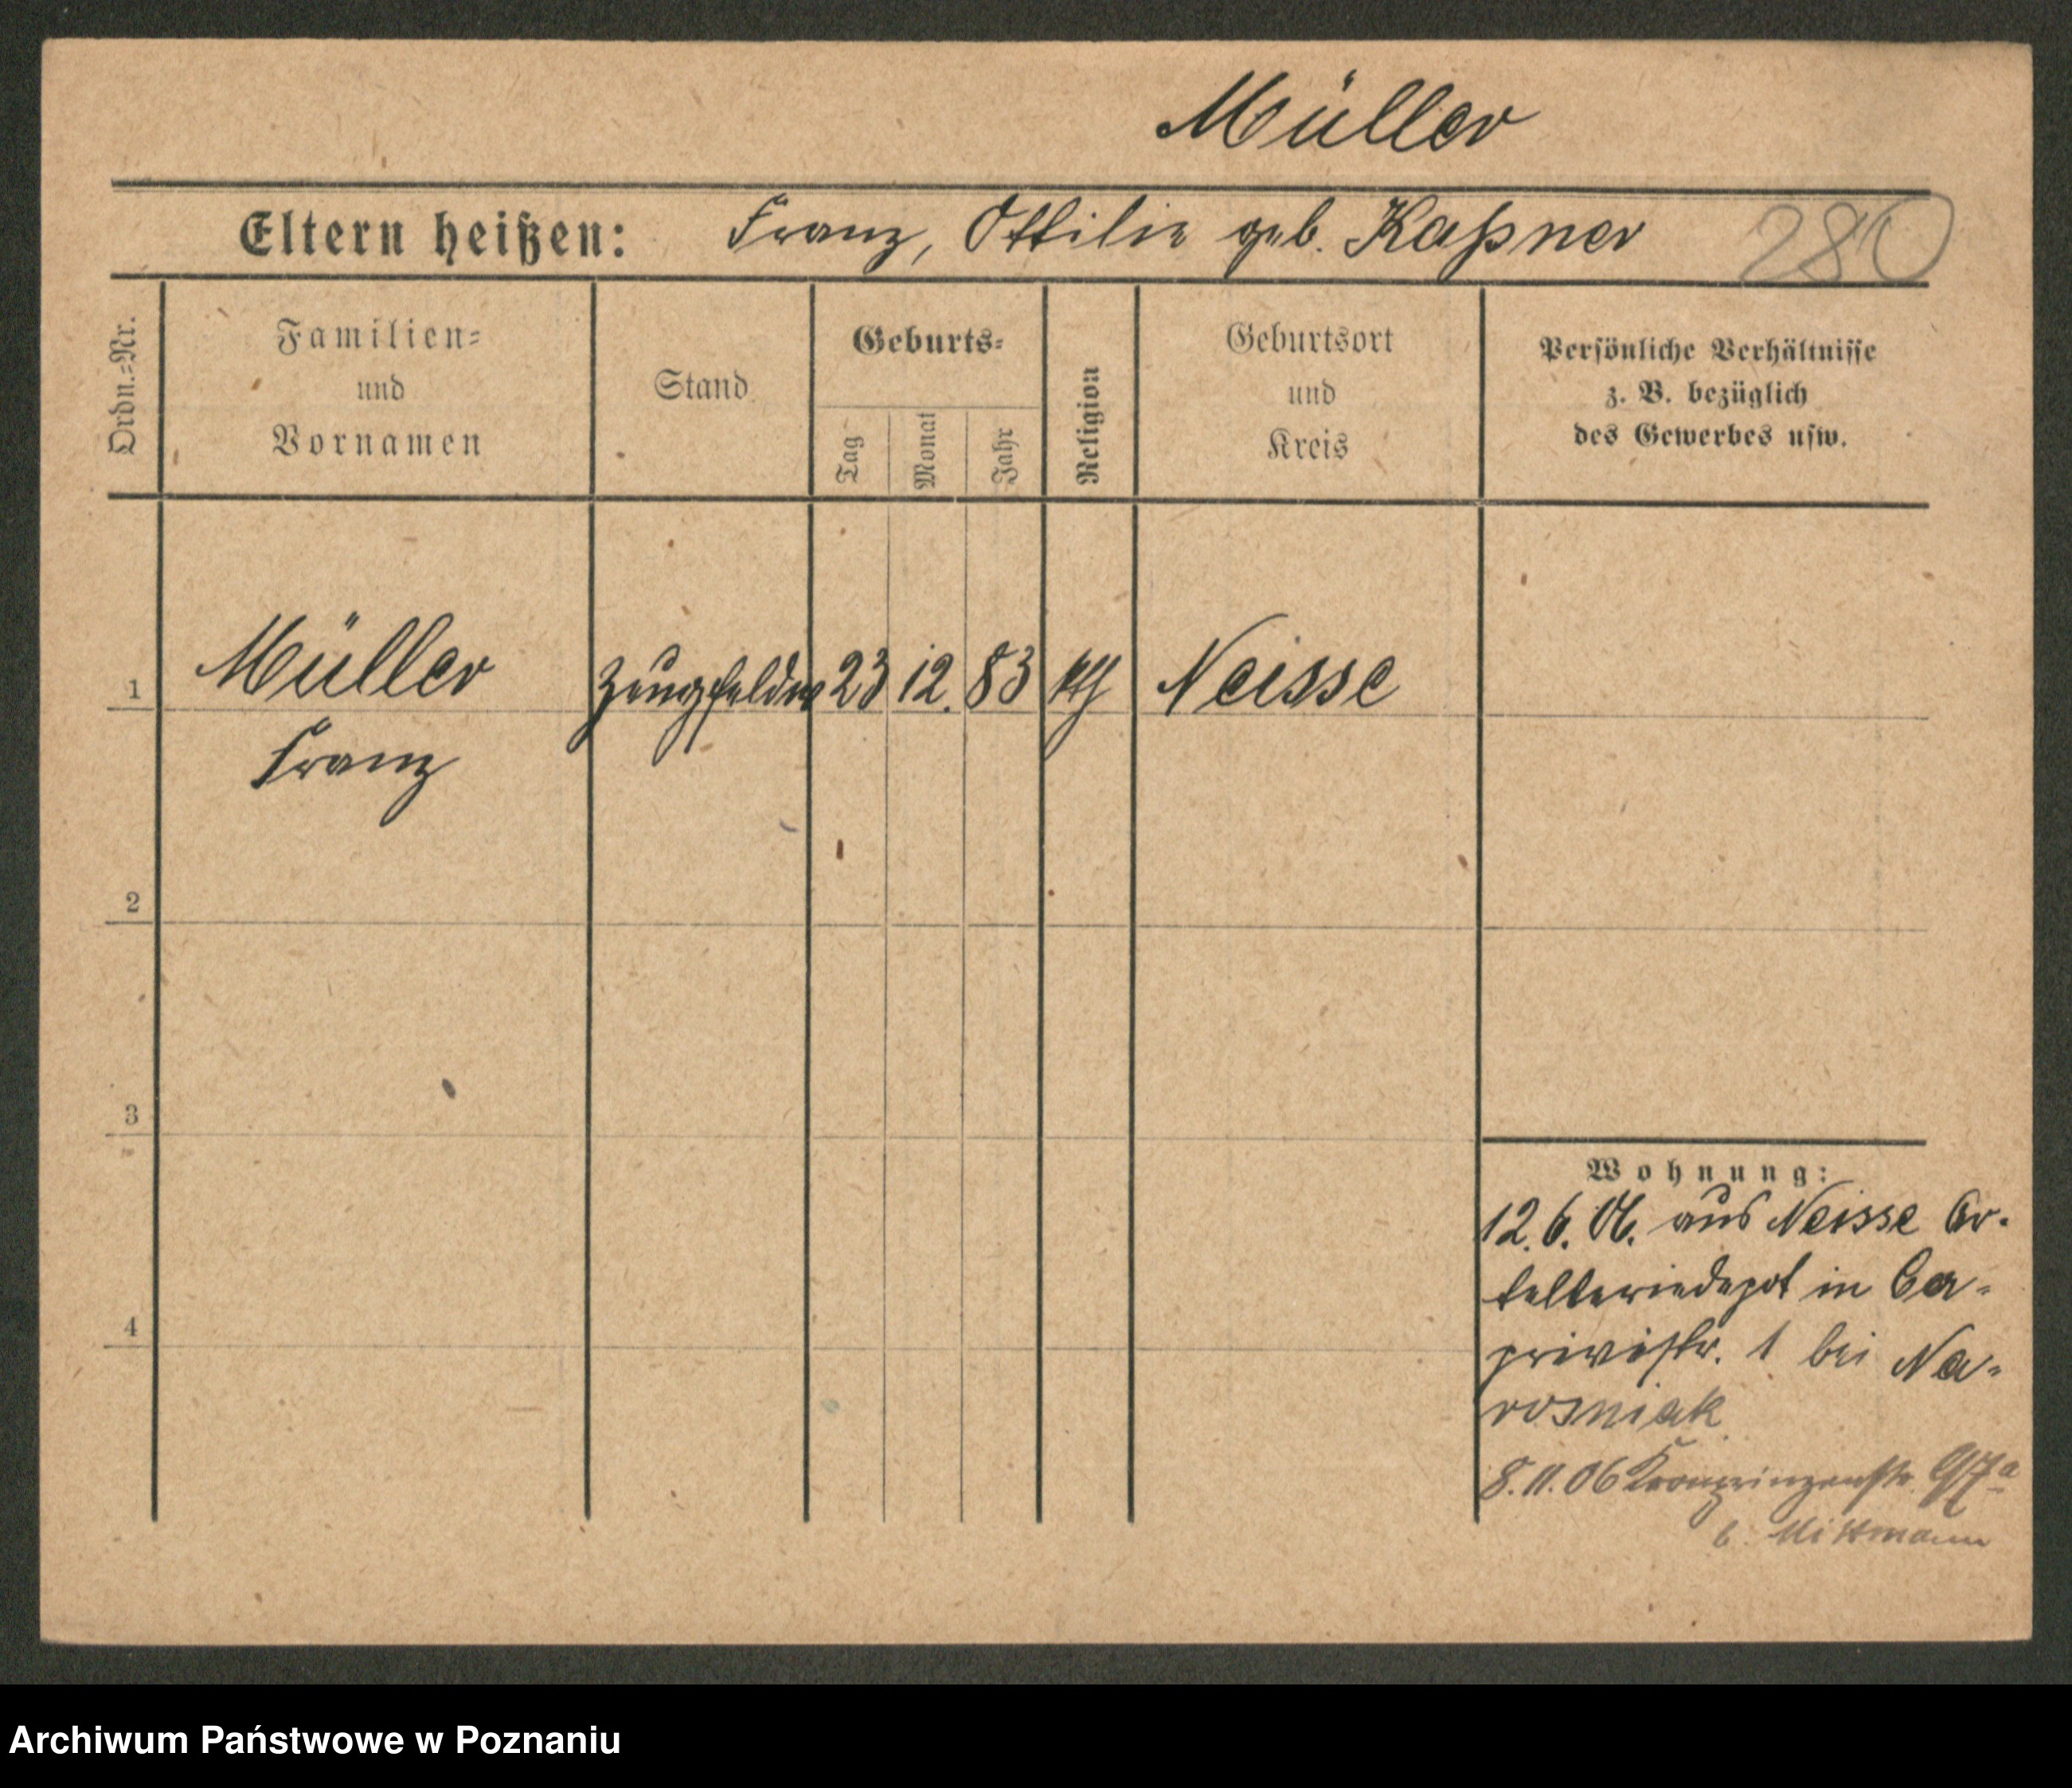 Müller
Eltern heißen: Franz, Ottilie geb. Kaßner 280
Ordn.-Nr.
Familien-
und
Vornamen
Stand
Geburts-
Tag
Monat
Jahr
Religion
Geburtsort
und
Kreis
Persönliche Verhältnisse
z. B. bezüglich
des Gewerbes usw.
1 Müller Zeugfeldw 23 12. 83 kth Neisse
Franz
2
3
4
Wohnung:
12.6.06. aus Neisse Ar-
telleriedepot in Ca-
privistr. 1 bei Na-
rosniak
8.11.06 Kronprinzenstr. 97a
b. Mittmann
Archiwum Państwowe w Poznaniu